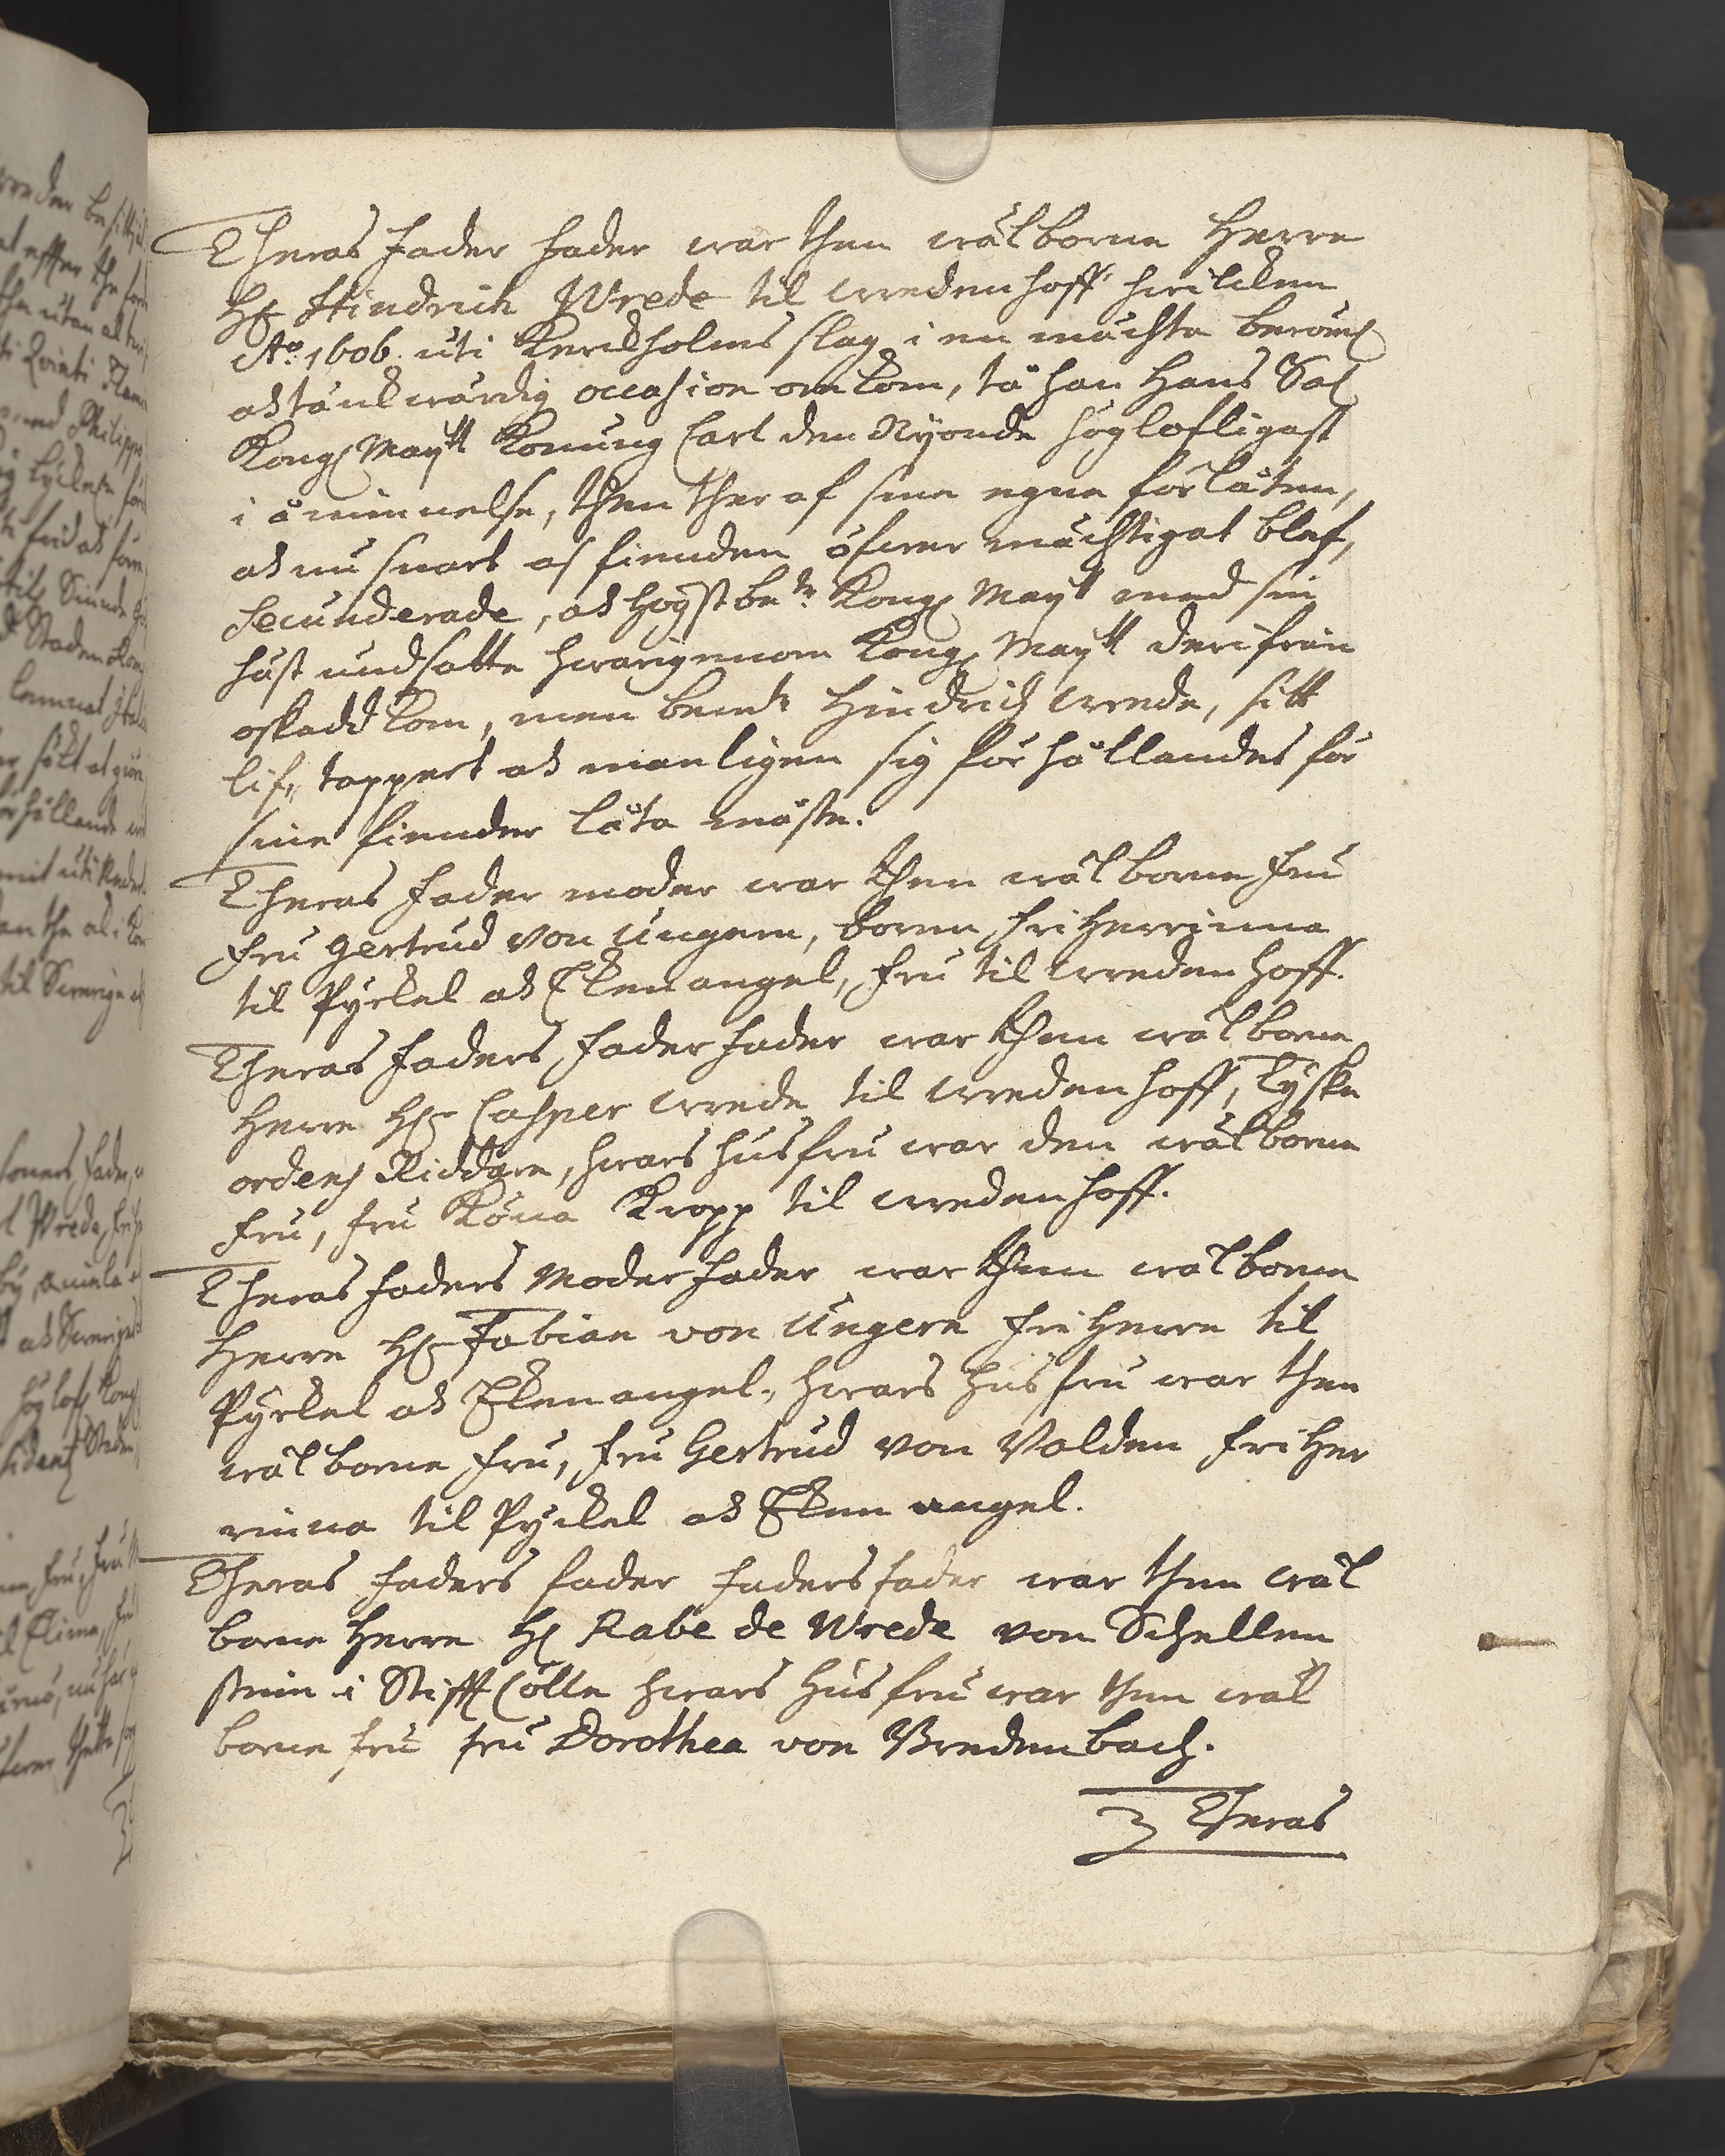 Theras fader fader war then wälborne Herre
Hr Hindrich Wrede til wredenhoff hwilcken
Ao 1606. uti Kerckholms slag i en mächta berömd
ok tänckwärdig occasion omkom, tå han Hans Sal
Kongl Maytt Konung Carl den Nyonde höglofligast
i åminnelse, then ther af sine egne förlåten,
ok nu snart af fienden öfwer mächtigat blef,
secunderade, ok högstbete Kongl Maytt med sin
häst undsatte hwarigenom Kongl Maytt derifrån
oskadd kom, men bemte Hindrich wrede, sitt
lif, tappert ok manligen sig förhållandes för
sine fiender låta måste.
Theras fader moder war then wälborne fru
fru Gertrud von Ungern, boren friherrinna
til Pyrkel ok Ekenangel, fru til wredenhoff.
Theras faders fader fader war then wälborne
Herre Hr Casper wrede til wredenhoff, Tyske
ordens Riddare, hwars husfru war den wälborne
fru, fru Köna Kropp til wredenhoff.
Theras faders Moder fader war then wälborne
Herre Hr Fabian von Ungern friherre til
Pyrkel ok Ekenangel, hwars husfru war then
wälborne fru, fru Gertrud von Volden friher
rinna til Pyrkel ok Eken angel.
Theras faders fader faders fader war then wäl
borne Herre Hr Rabe de Wrede von Schellen
stein i Stifft Cölln hwars husfru war then wäl
borne fru fru Dorothea von Bredenbach.
Theras